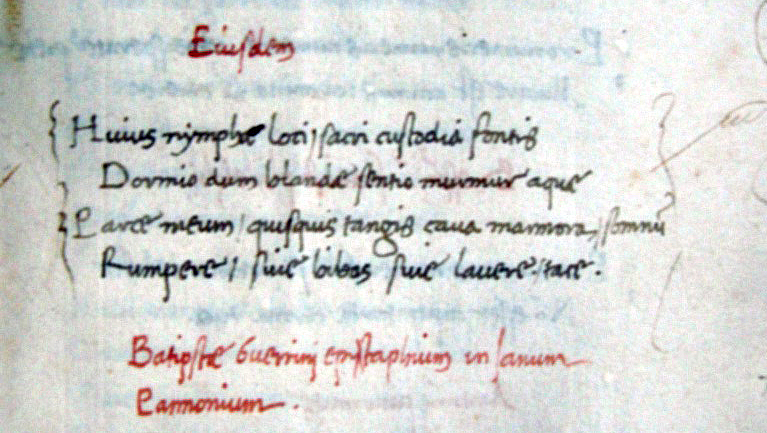 Eiusdem
Huius nymphæ loci, sacri custodia fontis
Dormio dum blandæ sentio murmur aquæ
Parce meum / quisquis tangis caua marmora / somnū
Rumpere / siue bibas siue lauere / tace .
Batistæ Guerrini epistaphium in Ianum
Pannonium .